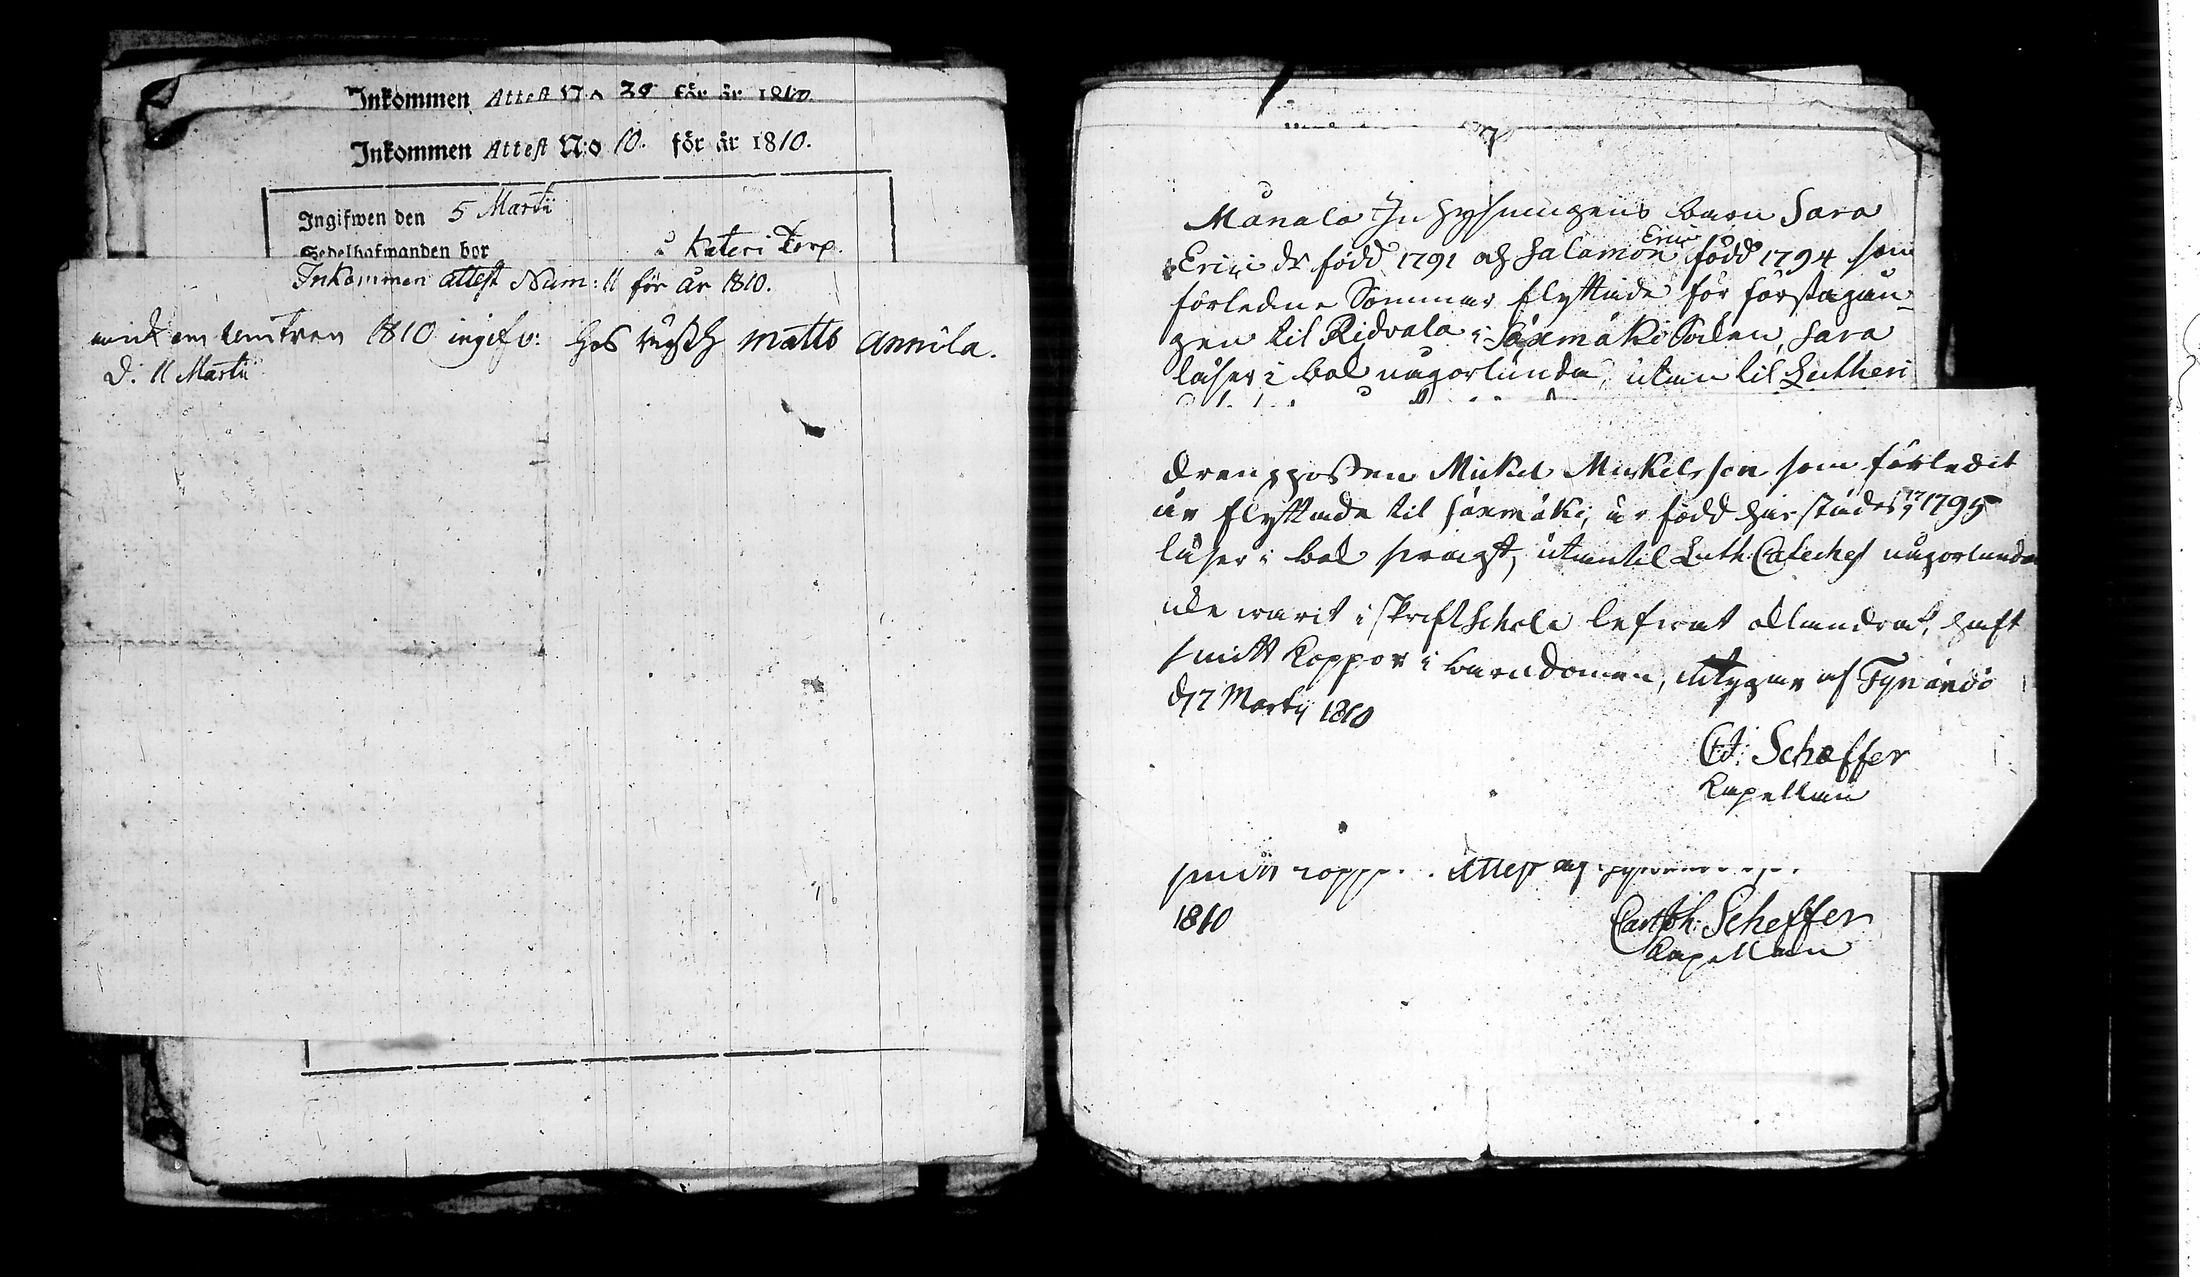 Inkommen Attest No 38 för år 1810.
Inkommen Attest No 10. för år 1810.
Ingifwen den 5 Martii
Sedelhafwanden bor Kateri Torp.
Inkommen attest Num: 11 för år 1810.
1810 ingifv: hos Matts Annila.
D: 11 Martii
Manala Inhysningens barn Sara
Erici dr född 1791 och Salamon Erici född 1794 som
förledne Sommar flyttade för förstagån-
gen til Ridvala i Säxmäki Soken, Sara
läser i bok någorlunda, utan til Lutheri
drengpossen Mickel Mickelsson som förledit
år flyttade til Säxmäki, är född härstädes 1795
läser i bok svagt, utantil Luth. Cateches någorlunda
icke warit i skriftschola lefwat oklandrat, haft
smitt koppor i barndomen, intygar af Tyrändö
d 7 Martij 1810
C:J: Scheffer
Kapellan
smitt kopp Attest
1810
Carl Joh: Scheffer
Kapellan